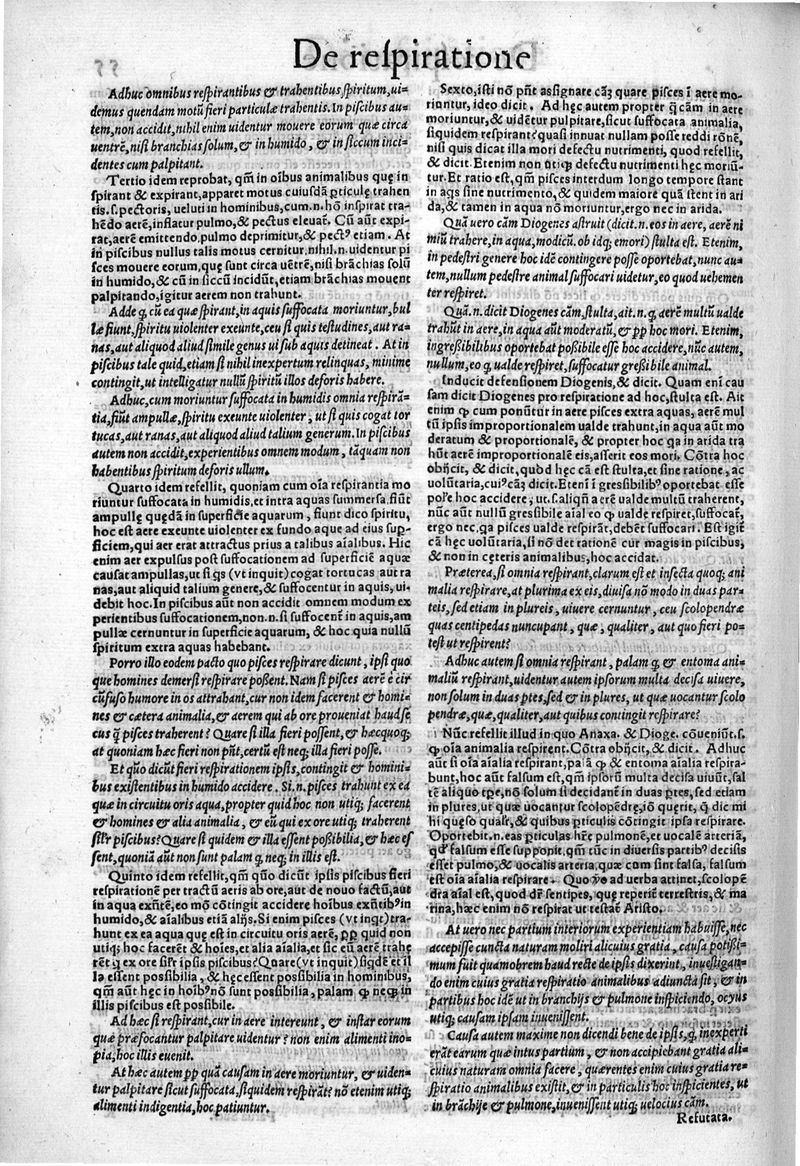 De respiratione
Adhuc omnibus respirantibus & trahentibus spiritum, ui-
demus quendam motũ fieri particulæ trahentis. In piscibus au-
tem, non accidit, nihil enim uidentur mouere eorum quæ circa
uentrẽ, nisi branchias solum, & in humido, & in siccum inci-
dentes cum palpitant.
Tertio idem reprobat, qm̃ in oĩbus animalibus quę in-
spirant & expirant, apparet motus cuiusdã pticulę trahen
tis. s. pectoris, ueluti in hominibus, cum. n. hõ inspirat tra-
hẽdo aerẽ, inflatur pulmo, & pectus eleuat̃. Cũ aũt expi-
rat, aerẽ emittendo, pulmo deprimitur, & pectꝰ etiam. At
in piscibus nullus talis motus cernitur, nihil. n. uidentur pi
sces mouere eorum, quę sunt circa uẽtrẽ, nisi brãchias solũ
in humido, & cũ in siccũ incidũt, etiam brãchias mouent
palpitando, igitur aerem non trahunt.
Adde q, cũ ea quæ spirant, in aquis suffocata moriuntur, bul
læ fiunt, spiritu uiolenter exeunte, ceu si quis testudines, aut ra-
nas, aut aliquod aliud simile genus ui sub aquis detineat. At in
piscibus tale quid, etiam si nihil inexpertum relinquas, minime
contingit, ut intelligatur nullũ spiritũ illos deforis habere.
Adhuc, cum moriuntur suffocata in humidis omnia respirã-
tia, fiũt ampullæ, spiritu exeunte uiolenter, ut si quis cogat tor
tucas, aut ranas, aut aliquod aliud talium generum. In piscibus
autem non accidit, experientibus omnem modum, tãquam non
habentibus spiritum deforis ullum.
Quarto idem refellit, quoniam cum oĩa respirantia mo
riuntur suffocata in humidis, et intra aquas summersa, fiũt
ampullę quędã in superficie aquarum, fiunt dico spiritu,
hoc est aere exeunte uiolenter ex fundo aque ad eius sup-
ficiem, qui aer erat attractus prius a talibus aĩalibus. Hic
enim aer expulsus post suffocationem ad superficiẽ aquæ
causat ampullas, ut si qs (vt inquit) cogat tortucas aut ra
nas, aut aliquid talium genere, & suffocentur in aquis, ui-
debit hoc. In piscibus aũt non accidit omnem modum ex
perientibus suffocationem, non. n. si suffocent̃ in aquis, am
pullæ cernuntur in superficie aquarum, & hoc quia nullũ
spiritum extra aquas habebant.
Porro illo eodem pacto quo pisces respirare dicunt, ipsi quo
que homines demersi respirare possent. Nam si pisces aerẽ e cir
cũfuso humore in os attrahant, cur non idem facerent & homi-
nes & cætera animalia, & aerem qui ab ore proueniat haud se-
cus q̃ pisces traherent? Quare si illa fieri possent, & hæc quoq;
at quoniam hæc fieri non pñt, certũ est neq; illa fieri posse.
Et quo dicũt fieri respirationem ipsis, contingit & homini-
bus existentibus in humido accidere. Si. n. pisces trahunt ex ea
quæ in circuitu oris aqua, propter quid hoc non utiq; facerent
& homines & alia animalia, & eũ qui ex ore utiq; traherent
silr piscibus? Quare si quidem & illa essent possibilia, & hæc es
sent, quoniã aũt non sunt palam q, neq; in illis est.
Quinto idem refellit, qm̃ quo dicũt ipsis piscibus fieri
respirationẽ per tractũ aeris ab ore, aut de nouo factũ, aut
in aqua exñtẽ, eo mõ cõtingit accidere hoĩbus exñtibꝰ in
humido, & aĩalibus etiã alijs. Si enim pisces (vt inqt) tra-
hunt ex ea aqua que est in circuitu oris aerẽ, pp quid non
utiq; hoc facerẽt & hoĩes, et alia aĩalia, et sic eũ aerẽ trahe
rẽt q ex ore silr ipsis piscibus? Quare (vt inquit) siqdẽ et il
la essent possibilia, & hęc essent possibilia in hominibus,
qm̃ aũt hęc in hoĩbꝰ nõ sunt possibilia, palam ꝙ neq; in
illis piscibus est possibile.
Ad hæc si respirant, cur in aere intereunt, & instar eorum
quæ præfocantur palpitare uidentur? non enim alimenti ino-
pia, hoc illis euenit.
At hæc autem pp quã causam in aere moriuntur, & uiden-
tur palpitare sicut suffocata, siquidem respirãt? nõ etenim utiq;
alimenti indigentia, hoc patiuntur.
Sexto, isti nõ pñt assignare cãʒ quare pisces ĩ aere mo-
riuntur, ideo dicit. Ad hęc autem propter q̃ cãm in aere
moriuntur, & uidẽtur pulpitare, sicut suffocata animalia,
siquidem respirant? quasi innuat nullam posse reddi rõnẽ,
nisi quis dicat illa mori defectu nutrimenti, quod refellit,
& dicit. Etenim non utiq; defectu nutrimenti hęc moriũ-
tur. Et ratio est, qm̃ pisces interdum longo tempore stant
in aqs sine nutrimento, & quidem maiore quã stent in ari
da, & tamen in aqua nõ moriuntur, ergo nec in arida.
Quã uero cãm Diogenes astruit (dicit. n. eos in aere, aerẽ ni
miũ trahere, in aqua, modicũ. ob idq; emori) stulta est. Etenim,
in pedestri genere hoc idẽ contingere posse oportebat, nunc au-
tem, nullum pedestre animal suffocari uidetur, eo quod uehemen
ter respiret.
Quã. n. dicit Diogenes cãm, stulta, ait. n. q, aerẽ multũ ualde
trahũt in aere, in aqua aũt moderatũ, & pp hoc mori. Etenim,
ingressibilibus oportebat possibile esse hoc accidere, nũc autem,
nullum, eo q, ualde respiret, suffocatur gressibile animal.
Inducit defensionem Diogenis, & dicit. Quam eni cau
sam dicit Diogenes pro respiratione ad hoc, stulta est. Ait
enim ꝙ cum ponũtur in aere pisces extra aquas, aerẽ mul
tũ ipsis improportionalem ualde trahunt, in aqua aũt mo
deratum & proportionalẽ, & propter hoc qa in arida tra
hũt aerẽ improportionalẽ eis, asserit eos mori. Cõtra hoc
obijcit, & dicit, quod hęc cã est stulta, et sine ratione, ac
uolũtaria, cuiꝰ cãʒ dicit. Etenĩ ĩ gressibilibꝰ oportebat esse
possibile hoc accidere, ut. s. aliqñ aerẽ ualde multũ traherent,
nũc aũt nullũ gressibile aĩal eo ꝙ ualde respiret, suffocat̃,
ergo nec, qa pisces ualde respirãt, debẽt suffocari. Est igit̃
cã hęc uolũtaria, si nõ det rationẽ cur magis in piscibus,
& non in cęteris animalibus, hoc accidat.
Præterea, si omnia respirant, clarum est et insecta quoq; ani
malia respirare, at plurima ex eis, diuisa nõ modo in duas par-
teis, sed etiam in plureis, uiuere cernuntur, ceu scolopendræ
quas centipedas nuncupant, quæ, qualiter, aut quo fieri po-
test ut respirent?
Adhuc autem si omnia respirant, palam q, & entoma ani-
maliũ respirant, uidentur autem ipsorum multa decisa uiuere,
non solum in duas ptes, sed & in plures, ut quæ uocantur scolo
pendræ, quæ, qualiter, aut quibus contingit respirare?
Nũc refellit illud in quo Anaxa. & Dioge. cõueniũt. s.
ꝙ oĩa animalia respirent. Cõtra obijcit, & dicit. Adhuc
aũt si oĩa aĩalia respirant, palã ꝙ & entoma aĩalia respira-
bunt, hoc aũt falsum est, qm̃ ipsorũ multa decisa uiuũt, sal
tẽ aliquo tpe, nõ solum si decidant in duas ptes, sed etiam
in plures, ut quæ uocantur scolopẽdrę, iõ querit, ꝙ dic mi
hi queso qualr, & quibus pticulis cõtingit ipsa respirare.
Oportebit. n. eas pticulas hẽre pulmonẽ, et uocalẽ arteriã,
qd falsum esse supponit, qm̃ tũc in diuersis partibꝰ decisis
esset pulmo, & uocalis arteria, quæ cum sint falsa, falsum
est oĩa aĩalia respirare. Quo ỹo ad uerba attinet, scolopẽ
dra aĩal est, quod dr̃ sentipes, quę reperit̃ terrestris, & ma
rina, hæc enim nõ respirat ut testat̃ Aristo.
At uero nec partium interiorum experientiam habuisse, nec
accepisse cuncta naturam moliri alicuius gratia, causa potissi-
mum fuit quamobrem haud recte de ipsis dixerint, inuestigan-
do enim cuius gratia respiratio animalibus adiuncta sit, & in
partibus hoc idẽ ut in branchijs & pulmone inspiciendo, ocyus
utiq; causam ipsam inuenissent.
Causa autem maxime non dicendi bene de ipsis, q, inexperti
erãt earum quæ intus partium, & non accipiebant gratia ali-
cuius naturam omnia facere, quærentes enim cuius gratia re-
spiratio animalibus existit, & in particulis hoc inspicientes, ut
in brãchijs & pulmone, inuenissent utiq; uelocius cãm.
Refutata.